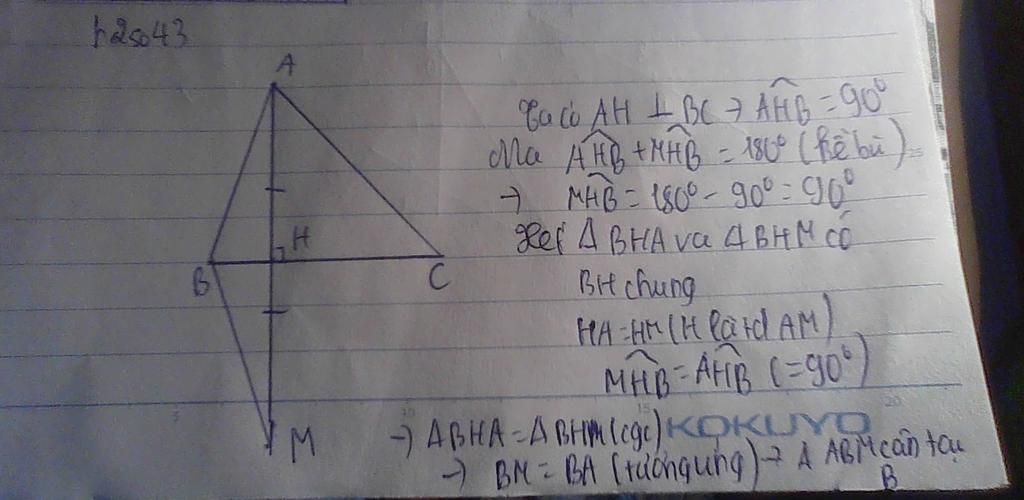 h2so43
A
H
B
C
M
Ta có AH ⊥ BC → AHB̂ = 90°
Ma AHB̂ + MHB̂ = 180° (kề bù)
→ MHB̂ = 180° - 90° = 90°
Xet Δ BHA va Δ BHM có
BH chung
HA = HM (H là td AM)
MHB̂ = AHB̂ (= 90°)
→ ΔBHA = ΔBHM (cgc)
KOKUYO
→ BM = BA (tương ứng) → Δ ABM cân tại
B